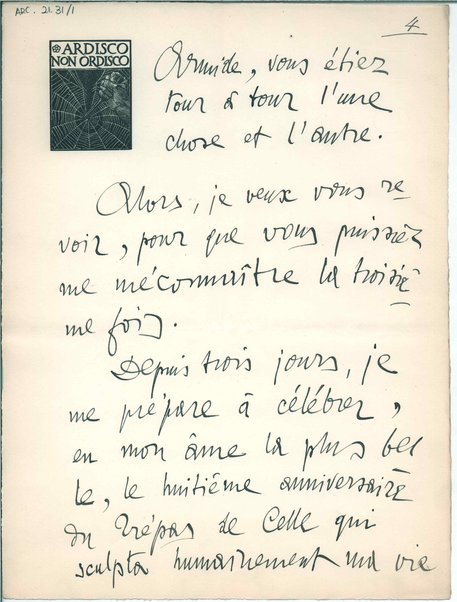 ARC. 21.31/1
4
ARDISCO
NON ORDISCO
Armide, vous étiez
tour à tour l'une
chose et l'autre.
Alors, je veux vous re
voir, pour que vous puissiez
me méconnaître la troisiè
me fois.
Depuis trois jours, je
me prépare à célébrer,
en mon âme la plus bel
le, le huitième anniversaire
du Trépas de Celle qui
sculpta humainement ma vie